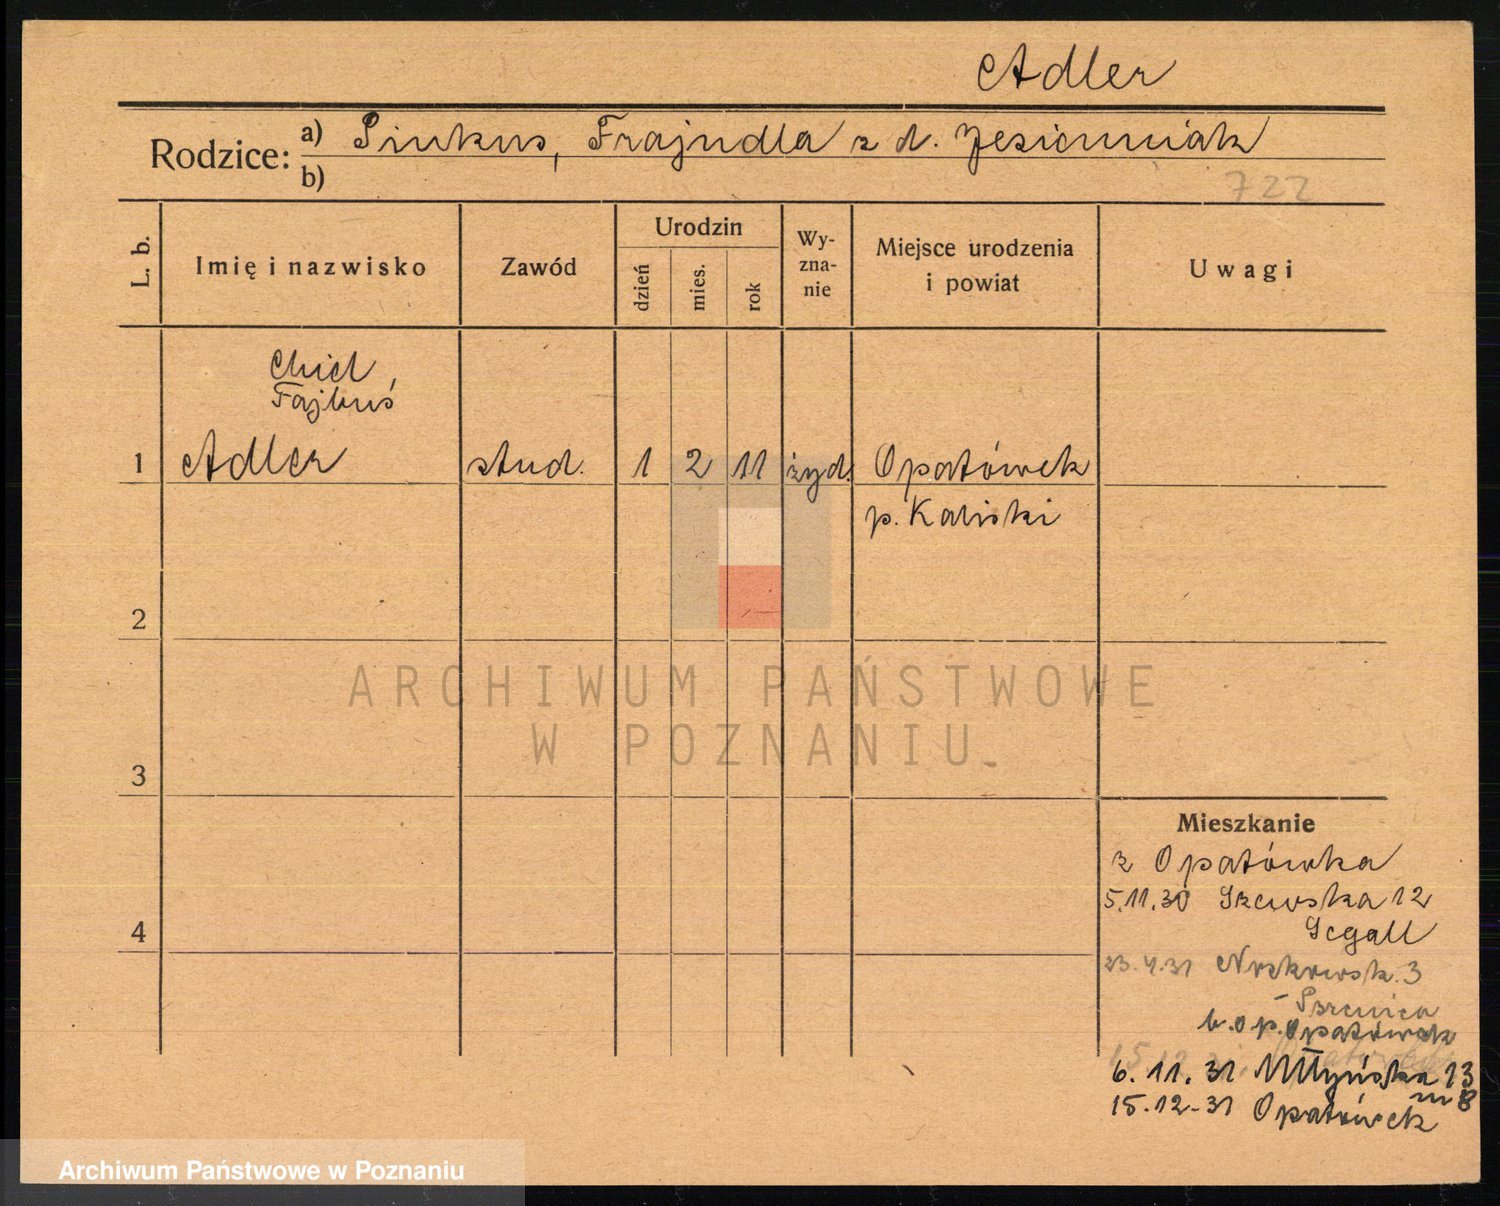 Adler
Rodzice: a) Pinkus, Frajndla z d. Jesionniak
b)
722
L. b.
Imię i nazwisko
Zawód
Urodzin
dzień
mies.
rok
Wy-
zna-
nie
Miejsce urodzenia
i powiat
Uwagi
Chiel
Fajbuś
1 Adler stud. 1 2 11 żyd. Opatówek
p. Kaliski
2
3
4
Mieszkanie
z Opatówka
5.11.30 Szewska 12
Segall
23.4.31 Noskowsk. 3
Pszenica
b. o p. Opatówek
6.11.31 Młyńska 13
m 8
15.12.31 Opatówek
ARCHIWUM PAŃSTWOWE
W POZNANIU
Archiwum Państwowe w Poznaniu